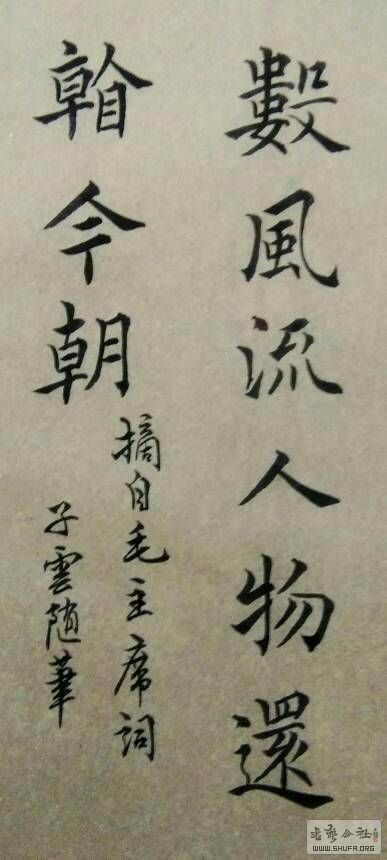 數風流人物還
㫖今朝
摘自毛主席詞
子雲随筆
书艺公社
WWW.SHUFA.ORG